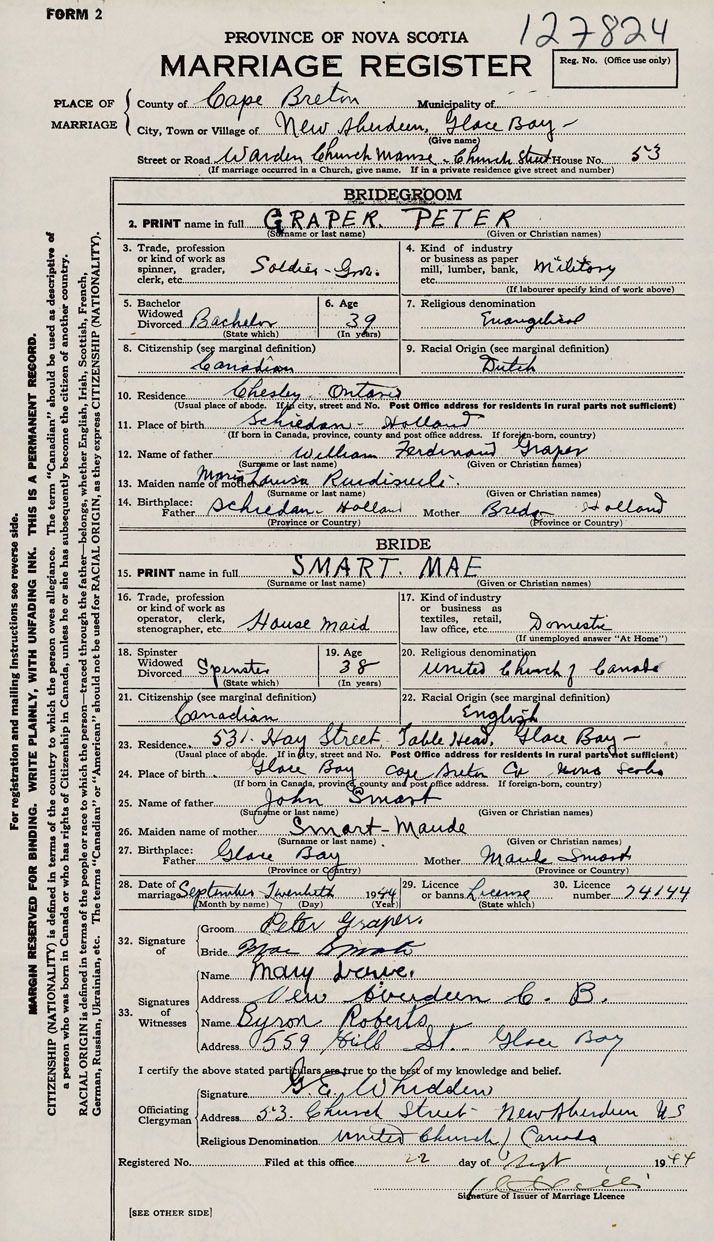 FORM 2
127824
PROVINCE OF NOVA SCOTIA
MARRIAGE REGISTER
Reg. No. (Office use only)
PLACE OF MARRIAGE
County of Cape Breton Municipality of
City, Town or Village of New Aberdeen, Glace Bay -
(Give name)
Street or Road Warden Church Manse - Church Street House No. 53
(If marriage occurred in a Church, give name. If in a private residence give street and number)
BRIDEGROOM
2. PRINT name in full GRAPER. PETER
(Surname or last name) (Given or Christian names)
3. Trade, profession or kind of work as spinner, grader, clerk, etc. Soldier - Gnr.
4. Kind of industry or business as paper mill, lumber, bank, etc. Military
(If labourer specify kind of work above)
5. Bachelor Widowed Divorced Bachelor
(State which)
6. Age 39
(In years)
7. Religious denomination
Evangelical
8. Citizenship (see marginal definition)
Canadian
9. Racial Origin (see marginal definition)
Dutch
10. Residence Chesley, Ontario
(Usual place of abode. If in city, street and No. Post Office address for residents in rural parts not sufficient)
11. Place of birth Schiedan - Holland
(If born in Canada, province, county and post office address. If foreign-born, country)
12. Name of father William Ferdinand Graper
(Surname or last name) (Given or Christian names)
13. Maiden name of mother Maria Louisa
(Surname or last name) (Given or Christian names)
14. Birthplace: Father Schiedan - Holland Mother Breda Holland
(Province or Country) (Province or Country)
BRIDE
15. PRINT name in full SMART. MAE
(Surname or last name) (Given or Christian names)
16. Trade, profession or kind of work as operator, clerk, stenographer, etc House maid
17. Kind of industry or business as textiles, retail, law office, etc Domestic
(If unemployed answer "At Home")
18. Spinster Widowed Divorced Spinster
(State which)
19. Age 38
(In years)
20. Religious denomination
United Church of Canada
21. Citizenship (see marginal definition)
Canadian
22. Racial Origin (see marginal definition)
English
23. Residence 531. Hay Street, Table Head, Glace Bay -
(Usual place of abode. If in city, street and No. Post Office address for residents in rural parts not sufficient)
24. Place of birth Glace Bay Cape Breton Co Nova Scotia
(If born in Canada, province, county and post office address. If foreign-born, country)
25. Name of father John Smart
(Surname or last name) (Given or Christian names)
26. Maiden name of mother Smart - Maude
(Surname or last name) (Given or Christian names)
27. Birthplace: Father Glace Bay Mother Maude Smart
(Province or Country) (Province or Country)
28. Date of marriage September Twentieth 1944
(Month by name) (Day) (Year)
29. Licence or banns License
(State which)
30. Licence number 74144
32. Signature of
Groom Peter Graper.
Bride Mae Smart
33. Signatures of Witnesses
Name Mary
Address New Aberdeen C. B.
Name Byron Roberts
Address 559 Hill St. Glace Bay
I certify the above stated particulars are true to the best of my knowledge and belief.
Officiating Clergyman
Signature G E Whidden
Address 53. Church Street - New Aberdeen NS
Religious Denomination United Church of Canada
Registered No. Filed at this office 22 day of Sept 1944
Signature of Issuer of Marriage Licence
[SEE OTHER SIDE]
For registration and mailing instructions see reverse side.
MARGIN RESERVED FOR BINDING. WRITE PLAINLY, WITH UNFADING INK. THIS IS A PERMANENT RECORD.
CITIZENSHIP (NATIONALITY) is defined in terms of the country to which the person owes allegiance. The term "Canadian" should be used as descriptive of
a person who was born in Canada or who has rights of Citizenship in Canada, unless he or she has subsequently become the citizen of another country.
RACIAL ORIGIN is defined in terms of the people or race to which the person—traced through the father—belongs, whether English, Irish, Scottish, French,
German, Russian, Ukrainian, etc. The terms "Canadian" or "American" should not be used for RACIAL ORIGIN, as they express CITIZENSHIP (NATIONALITY).